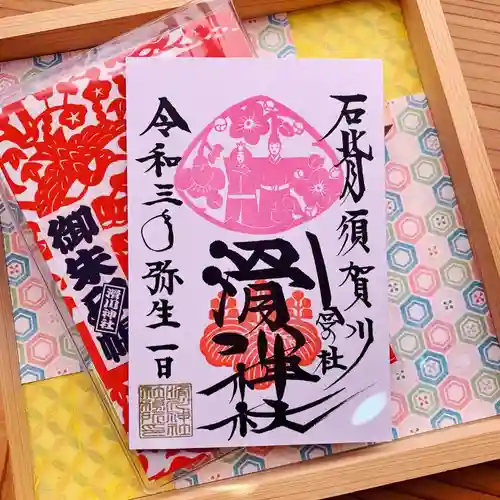 石背 須賀川
滑川神社
の社
令和三年 弥生一日
御朱印帳
滑川神社